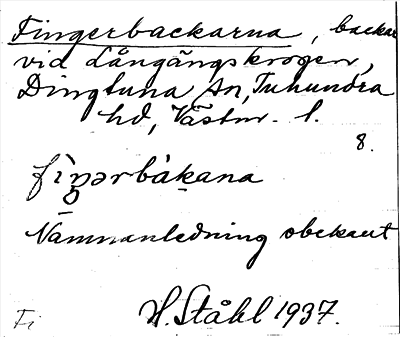 Fingerbackarna, backar
vid Långängskrogen,
Dingtuna sn, Tuhundra
hd, Västm. l.
8.
fìŋərbàkana
Namnanledning obekant
H. Ståhl 1937.
Fi